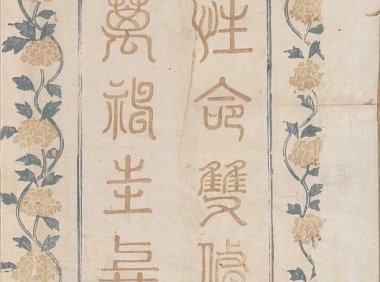 性命雙修
萬神圭